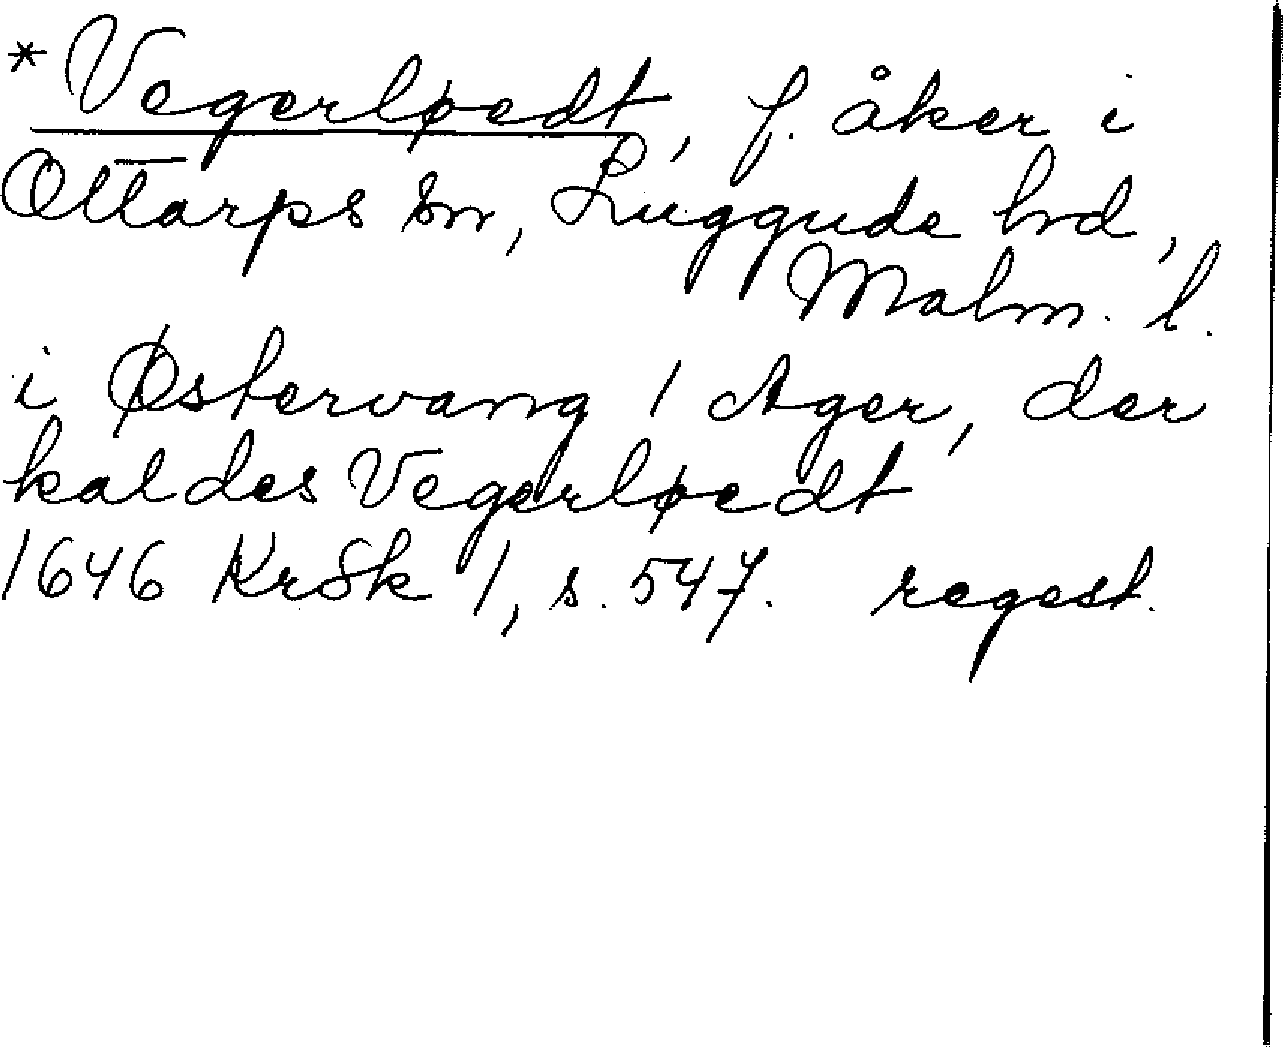 *Vegerløedt, f. åker i
Ottarps sn, Luggude hd,
Malm. l.
i Østervang 1 Ager, der
kaldes Vegerløedt
1646 KrSk 1, s. 547. regest.